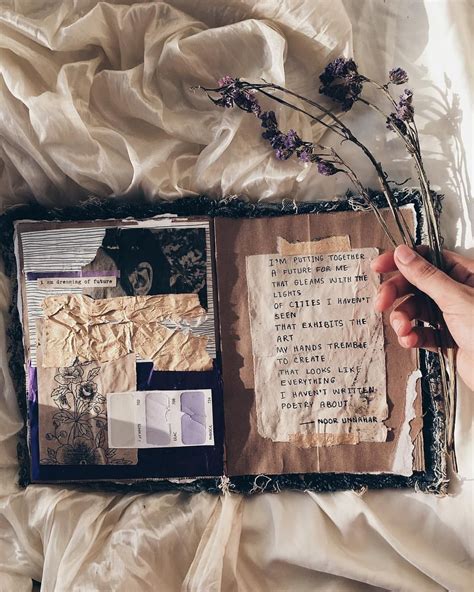 I am dreaming of future
I'M PUTTING TOGETHER
A FUTURE FOR ME
THAT GLEAMS WITH THE
LIGHTS
OF CITIES I HAVEN'T
SEEN
THAT EXHIBITS THE
ART
MY HANDS TREMBLE
TO CREATE
THAT LOOKS LIKE
EVERYTHING
I HAVEN'T WRITTEN
POETRY ABOUT.
— NOOR UNNAHAR